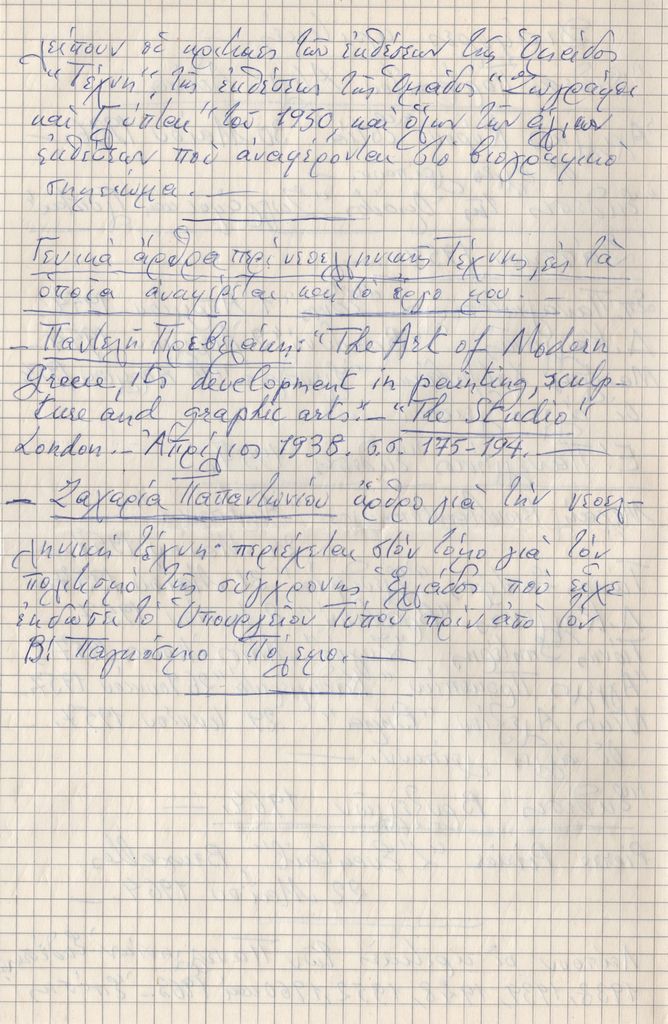 λείπουν οἱ κριτικὲς τῶν ἐκθέσεων τῆς Ὁμάδος
"Τέχνη", τῆς ἐκθέσεως τῆς Ὁμάδος "Ζωγράφοι
καὶ Γλύπται" τοῦ 1950, καὶ ὅλων τῶν ἄλλων
ἐκθέσεων ποὺ ἀναφέρονται στὸ βιογραφικὸ
σημείωμα.—
Γενικὰ ἄρθρα περὶ νεοελληνικῆς Τέχνης, εἰς τὰ
ὁποῖα ἀναφέρεται καὶ τὸ ἔργο μου.—
– Παντελῆ Πρεβελάκη: "The Art of Modern
Greece, its development in painting, sculp-
ture and graphic arts".– "The Studio"
London.– Ἀπρίλιος 1938. σ.σ. 175-194.—
– Ζαχαρία Παπαντωνίου ἄρθρο γιὰ τὴν νεοελ-
ληνικὴ τέχνη· περιέχεται στὸν τόμο γιὰ τὸν
πολιτισμὸ τῆς σύγχρονης Ἑλλάδος ποὺ εἶχε
ἐκδώσει τὸ Ὑπουργεῖον Τύπου πρὶν ἀπὸ τὸν
Β! Παγκόσμιο Πόλεμο.—